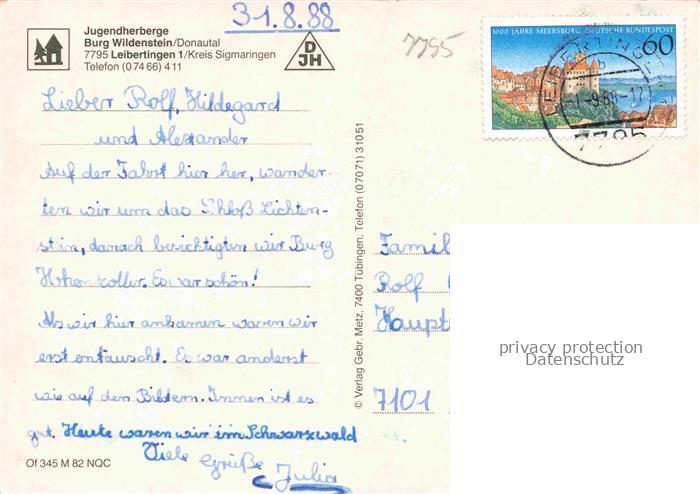 31.8.88
Jugendherberge
Burg Wildenstein/Donautal
7795 Leibertingen 1/Kreis Sigmaringen
Telefon (0 74 66) 4 11
DJH
7795
1000 JAHRE MEERSBURG DEUTSCHE BUNDESPOST
60
LEIBERTINGEN
-1.-9.88-17
7795
Lieber Rolf, Hildegard
und Alexander
Auf der Fahrt hier her, wander-
ten wir um das Schloß Lichten-
stein, danach besichtigten wir Burg
Hohenzoller. Es war schön!
Als wir hier ankamen waren wir
erst entäuscht. Es war anderst
wie auf den Bildern. Innen ist es
gut. Heute waren wir im Schwarzwald
Viele Grüße
Julia
© Verlag Gebr. Metz, 7400 Tübingen, Telefon (07071) 31051
Famil
Rolf
Haupt
7101
privacy protection
Datenschutz
Of 345 M 82 NQC